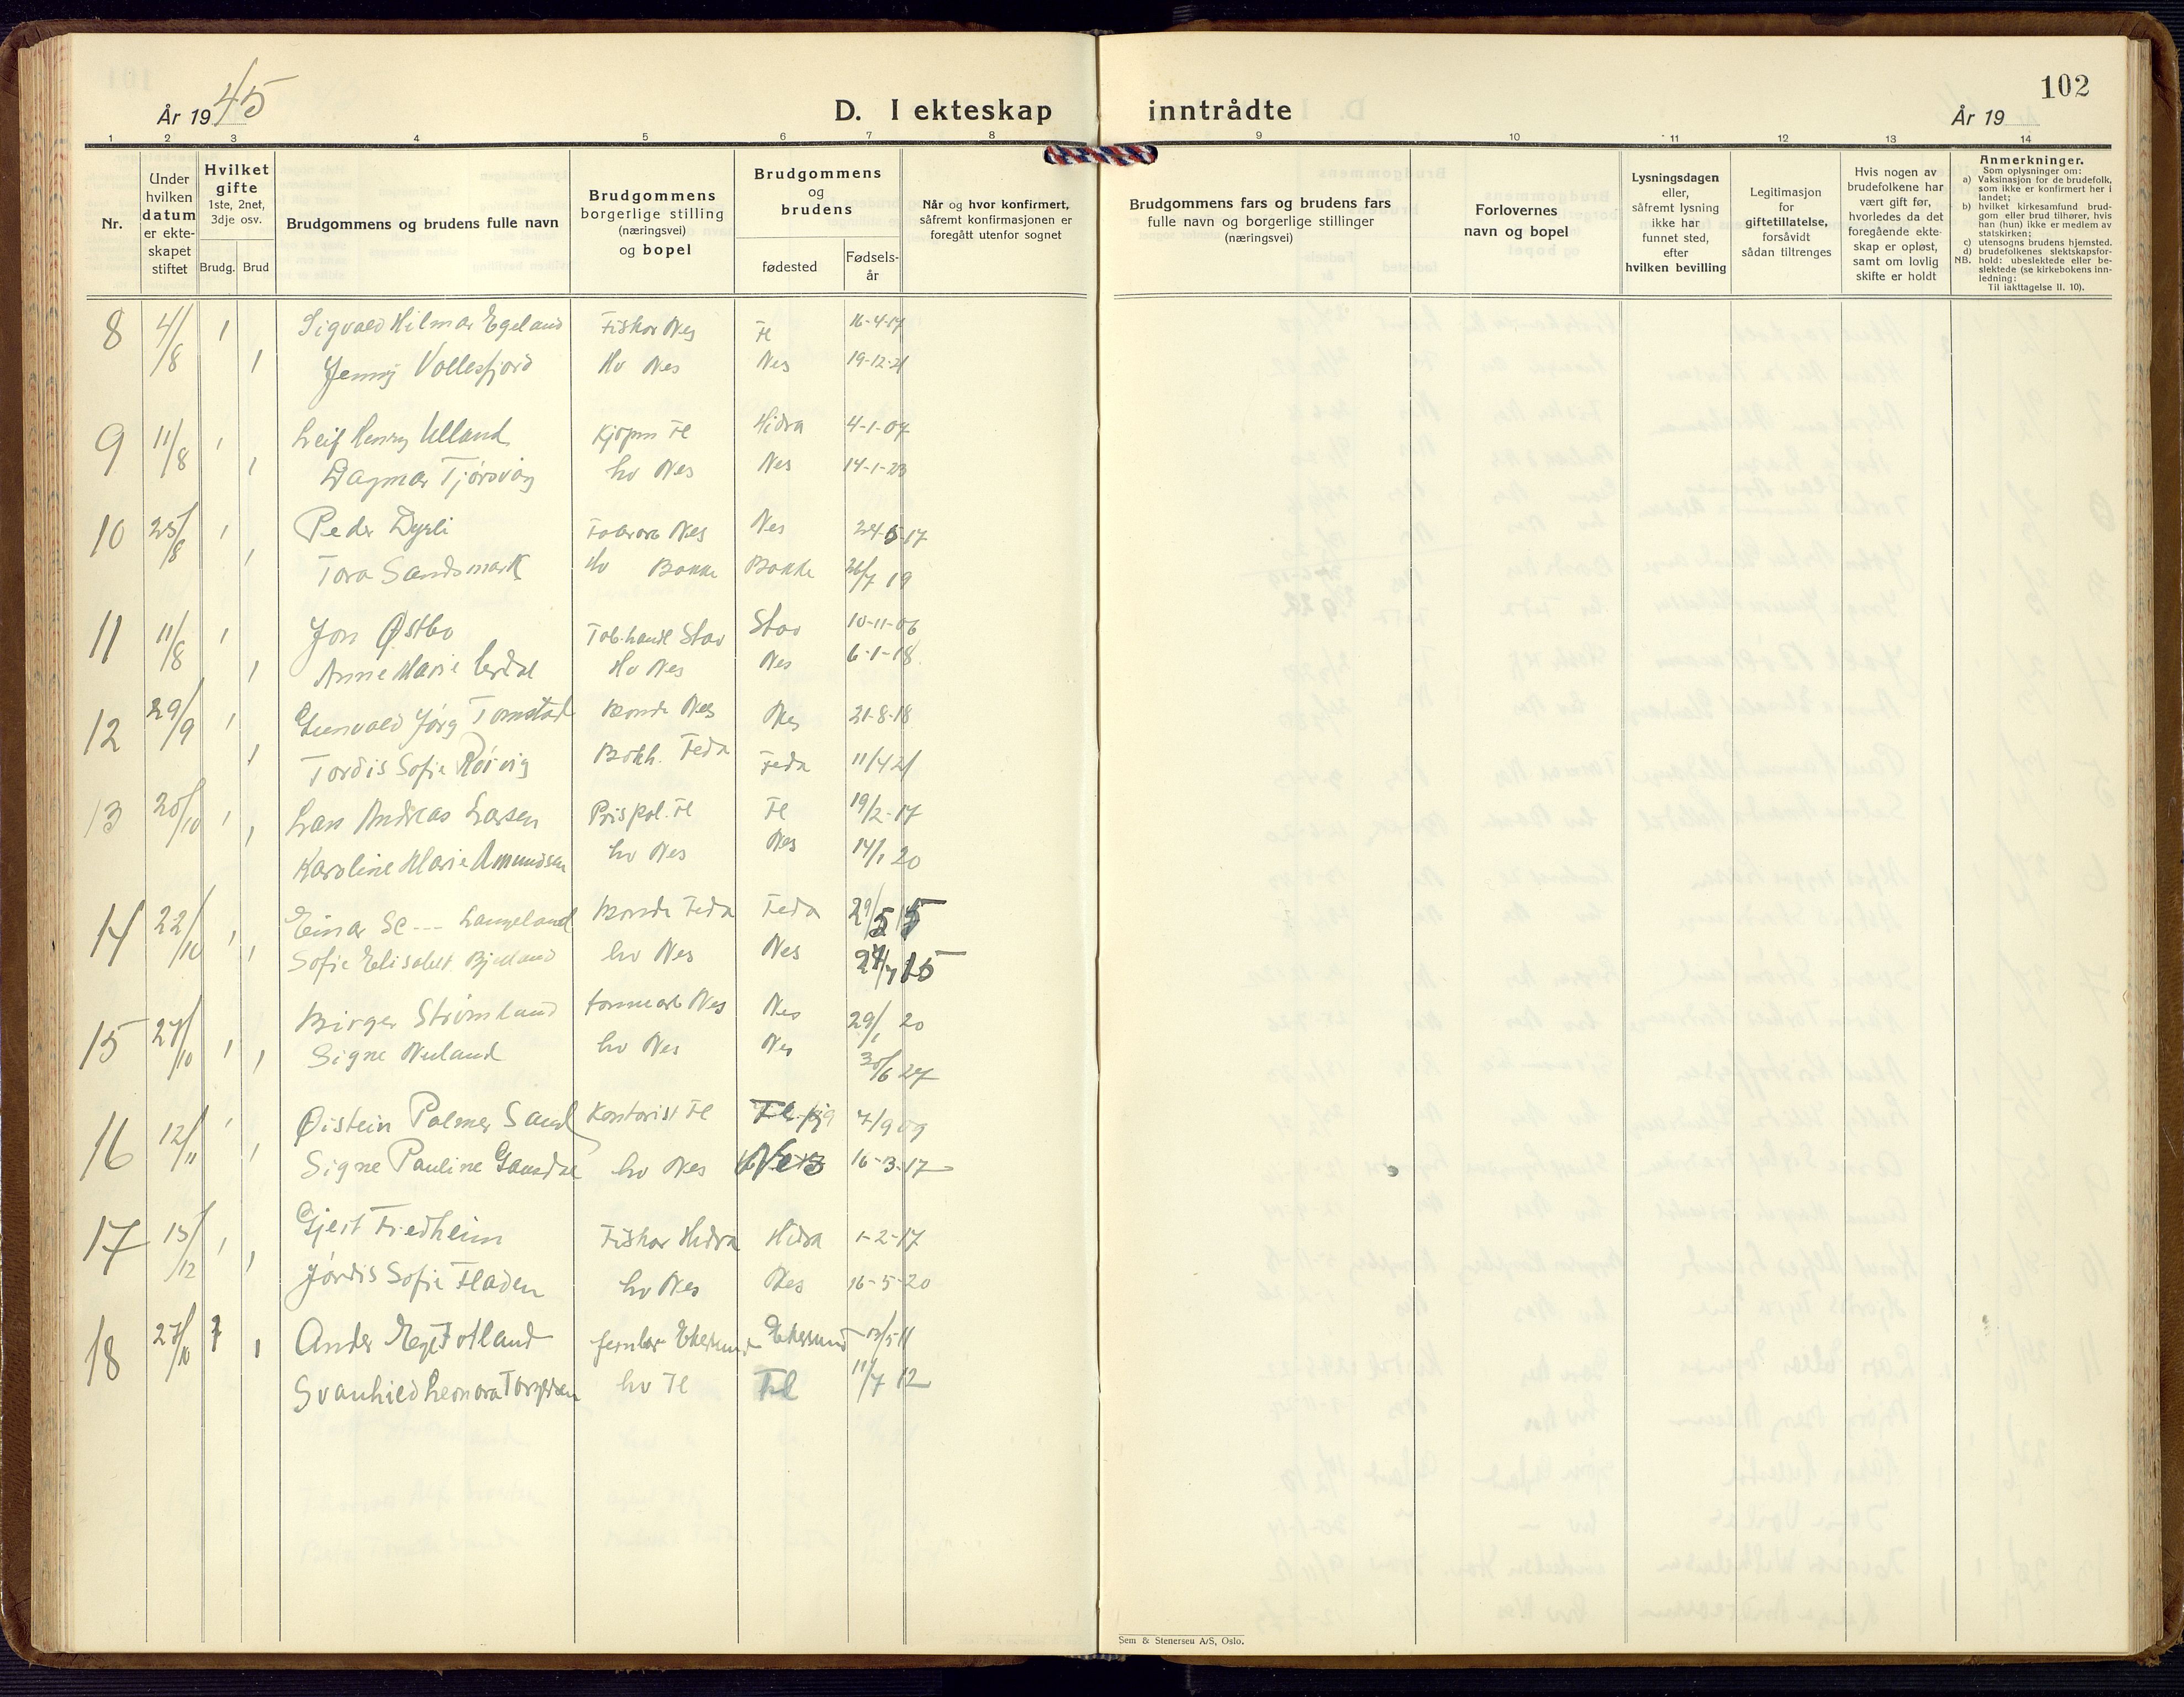 102
År 1945
D. I ekteskap inntrådte
År 19
1 2 3 4 5 6 7 8 9 10 11 12 13 14
Nr.
Under hvilken datum er ekteskapet stiftet
Hvilket gifte 1ste, 2net, 3dje osv.
Brudg. Brud
Brudgommens og brudens fulle navn
Brudgommens borgerlige stilling (næringsvei) og bopel
Brudgommens og brudens
fødested Fødselsår
Når og hvor konfirmert, såfremt konfirmasjonen er foregått utenfor sognet
Brudgommens fars og brudens fars fulle navn og borgerlige stillinger (næringsvei)
Forlovernes navn og bopel
Lysningsdagen eller, såfremt lysning ikke har funnet sted, efter hvilken bevilling
Legitimasjon for giftetillatelse, forsåvidt sådan tiltrenges
Hvis nogen av brudefolkene har vært gift før, hvorledes da det foregående ekteskap er opløst, samt om lovlig skifte er holdt
Anmerkninger.
Som oplysninger om:
a) Vaksinasjon for de brudefolk, som ikke er konfirmert her i landet;
b) hvilket kirkesamfund brudgom eller brud tilhører, hvis han (hun) ikke er medlem av statskirken;
c) utensogns brudens hjemsted.
d) brudefolkenes slektskapsforhold: ubeslektede eller beslektede (se kirkebokens innledning:
NB. Til iakttagelse II. 10).
8 4/8 1 Sigvald Hilmar Egeland Fisker Nes Fl 16-4-17
1 Jenny Vollesfjord Hv Nes Nes 19-12-21
9 11/8 1 Leif Henry Ulland Kjøpm Fl Hidra 4-1-07
1 Dagmar Tjørsvåg hv Nes Nes 14-1-23
10 25/8 1 Peder Dyrli Nes Nes 24-5-17
1 Tora Sandsmark Hv Bakke Bakke 26/7 19
11 11/8 1 Jon Østbø Tob.handl Stav Stav 10-11-06
1 Anne Marie Hv Nes Nes 6-1-18
12 29/9 1 Gunvald Jørg Tomstad Bonde Nes Nes 21-8-18
1 Tordis Sofie Røivig Bokh. Feda Feda 11/4 21
13 20/10 1 Lars Andreas Larsen Prispol. Fl Fl 19/2-17
1 Karoline Marie Amundsen hv Nes Nes 14/1 20
14 22/10 1 Einar Se --- Langeland Bonde Feda Feda 29/5 5
1 Sofie Elisabet Bjelland hv Nes Nes 24/7 15
15 27/10 1 Birger Strømland Nes Nes 29/1 20
1 Signe Nuland hv Nes Nes 30/6 27
16 12/11 1 Øistein Palmer Sand Kontorist Fl 7/9 09
1 Signe Pauline hv Nes Nes 16-3-17
17 15/12 1 Gjert Fredheim Fisker Hidra Hidra 1-2-17
1 Jørdis Sofie Fladen hv Nes Nes 16-5-20
18 27/10 Ander Fotland Ekersund Ekersund 11
1 Svanhild Leonora Torgersen hv Fl Fl 11/7 12
Sem & Stenersen A/S, Oslo.